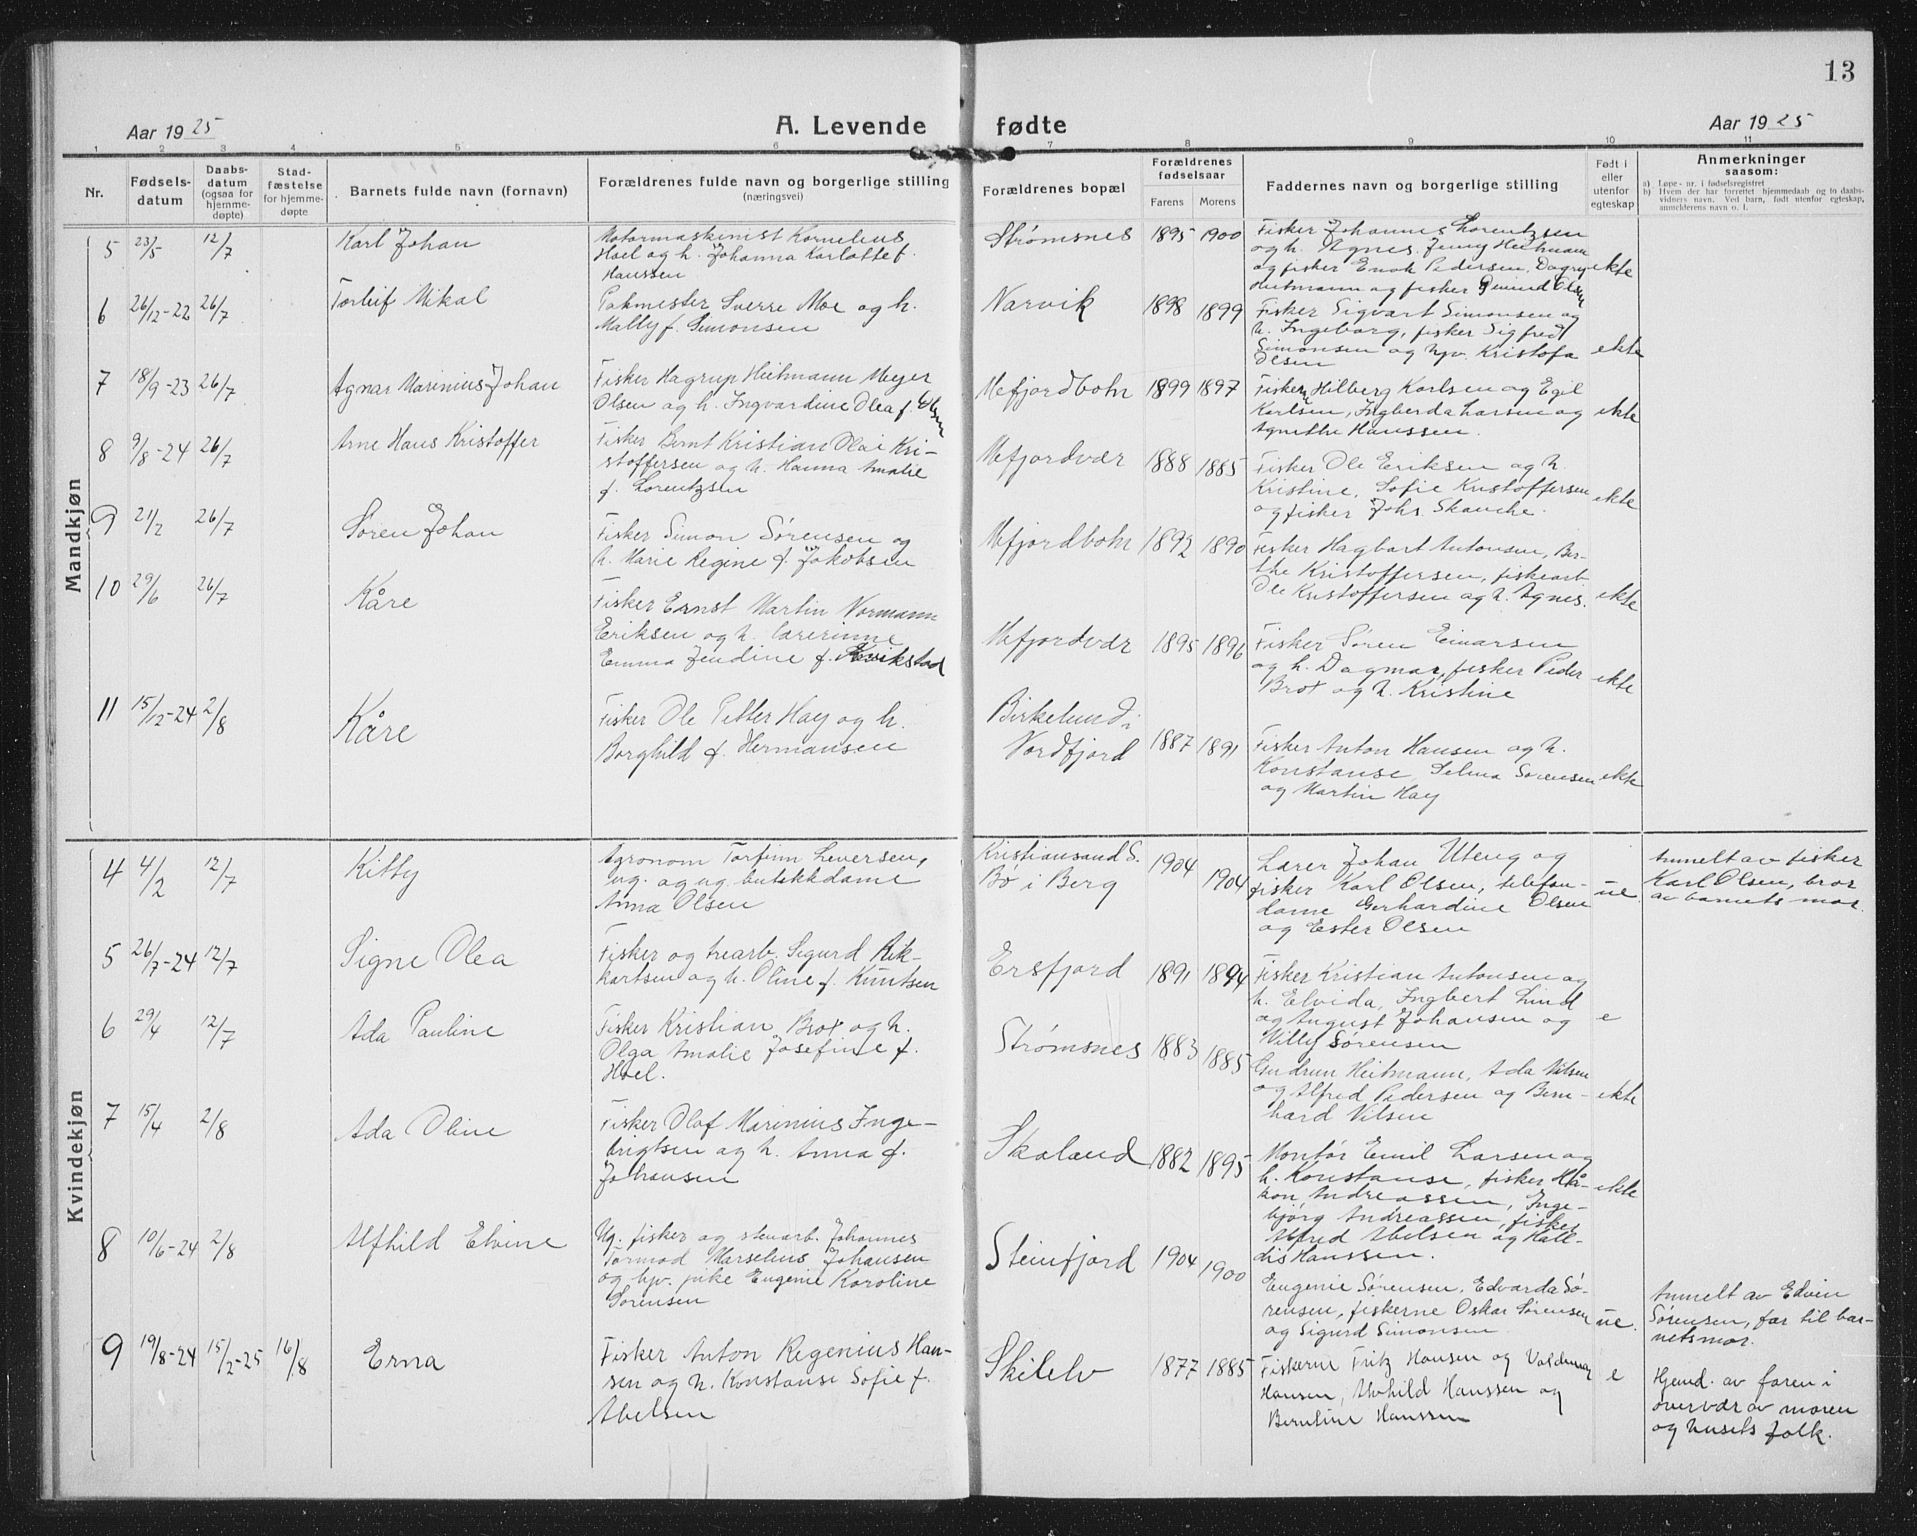 13
Aar 1925
A. Levende fødte
Aar 1925
1 2 3 4 5 6 7 8 9 10 11
Nr.
Fødsels-
datum
Daabs-
datum
(ogsaa for
hjemme-
døpte)
Stad-
fæstelse
for hjemme-
døpte
Barnets fulde navn (fornavn)
Forældrenes fulde navn og borgerlige stilling
(næringsvei)
Forældrenes bopæl
Forældrenes
fødselsaar
Farens Morens
Faddernes navn og borgerlige stilling
Født i
eller
utenfor
egteskap
Anmerkninger
saasom:
a) Løpe-nr. i fødselsregistret
b) Hvem der har forrettet hjemmedaab og to daabs-
vidners navn. Ved barn, født utenfor egteskap,
anmelderens navn o. l.
Mandkjøn
5 23/5 12/7 Karl Johan
Motormaskinist Kornelius
Hoel og h. Johanna Karlotte f.
Hanssen
Strømsnes 1895 1900
Fisker Johannes Lorentzsen
og h. Agnes. Jenny Heitmann
og fisker Enok Pedersen, Dagny
Heitmann og fisker Olsen
ekte
6 26/12-22 26/7 Torleif Mikal
Pakmester Sverre Moe og h.
Mally f. Simonsen
Narvik 1898 1899
Fisker Sigvart Simonsen og
h. Ingeborg, fisker Sigfred
Simonsen og hpv. Kristofa
Olsen
ekte
7 18/9-23 26/7 Agnar Marinius Johan
Fisker Hagrup Heitmann Meyer
Olsen og h. Ingvardine Olea f. Olsen
Mefjordbotn 1899 1897
Fisker Hilberg Karlsen og Egil
Karlsen, Ingberda Larsen og
Agnethe Hanssen.
ekte
8 9/8-24 26/7 Arne Hans Kristoffer
Fisker Bernt Kristian Olai Kri-
stoffersen og h. Hanna Amalie
f. Lorentzsen
Mefjordvær 1888 1885
Fisker Ole Eriksen og h.
Kristine, Sofie Kristoffersen
og fisker Johs. Skanche.
ekte
9 21/2 26/7 Søren Johan
Fisker Simon Sørensen og
h. Marie Regine f. Jakobsen
Mefjordbotn 1892 1890
Fisker Hagbart Antonsen, Ber-
the Kristoffersen, fiskearb.
Ole Kristoffersen og h. Agnes.
ekte
10 29/6 26/7 Kåre
Fisker Ernst Martin Normann
Eriksen og h. lærerinne
Emma Jendine f. Kvikstad
Mefjordvær 1895 1896
Fisker Søren Einarsen
og h. Dagmar, fisker Peder
Brox og h. Kristine
ekte
11 15/12-24 2/8 Kåre
Fisker Ole Petter Hay og h.
Borghild f. Hermansen
Birkelund i
Nordfjord 1887 1891
Fisker Anton Hansen og h.
Konstanse, Selma Sørensen
og Martin Hay
ekte
Kvindekjøn
4 4/2 12/7 Kitty
Agronom Torfinn Leversen,
ug. og ug. butikkdame
Anna Olsen
Kristiansand S.
Bø i Berg 1904 1904
Lærer Johan Uteng og
fisker Karl Olsen, telefon-
dame Gerhardine Olsen
og Ester Olsen
ue
Anmelt av fisker
Karl Olsen, bror
av barnets mor.
5 26/7-24 12/7 Signe Olea
Fisker og trearb. Sigurd Rik-
hartsen og h. Oline f. Knutsen
Ersfjord 1891 1894
Fisker Kristian Antonsen og
h. Elvida, Ingbert Lind
og August Johansen og
Willy Sørensen
e
6 29/4 12/7 Ada Pauline
Fisker Kristian Brox og h.
Olga Amalie Josefine f.
Hoel.
Strømsnes 1883 1885
Gudrun Heitmann, Ada Nilsen
og Alfred Pedersen og Bern-
hard Nilsen
ekte
7 15/4 2/8 Ada Oline
Fisker Olaf Marinius Inge-
brigtsen og h. Anna f.
Johansen
Skaland 1882 1895
Montør Emil Larsen og
h. Konstanse, fisker Hå-
kon Andreassen, Inge-
bjørg Andreassen, fisker
Alfred Abelsen og Hall-
dis Hanssen.
ekte
8 10/6-24 2/8 Alfhild Elvine
Ug. fisker og stenarb. Johannes
Tormod Marselius Johansen
og hpv. pike Eugenie Karoline
Sørensen
Steinfjord 1904 1900
Eugenie Sørensen, Edvarda Sø-
rensen, fiskerne Oskar Sørensen
og Sigurd Simonsen
ue.
Anmelt av Edvin
Sørensen, far til bar-
nets mor.
9 19/8-24 15/2-25 16/8 Erna
Fisker Anton Regenius Han-
sen og h. Konstanse Sofie f.
Abelsen
Skilelv 1877 1885
Fiskerne Fritz Hansen og Valdemar
Hansen, Alvhild Hanssen og
Berntine Hanssen
e
Hjemd. av faren i
overvær av moren
og husets folk.